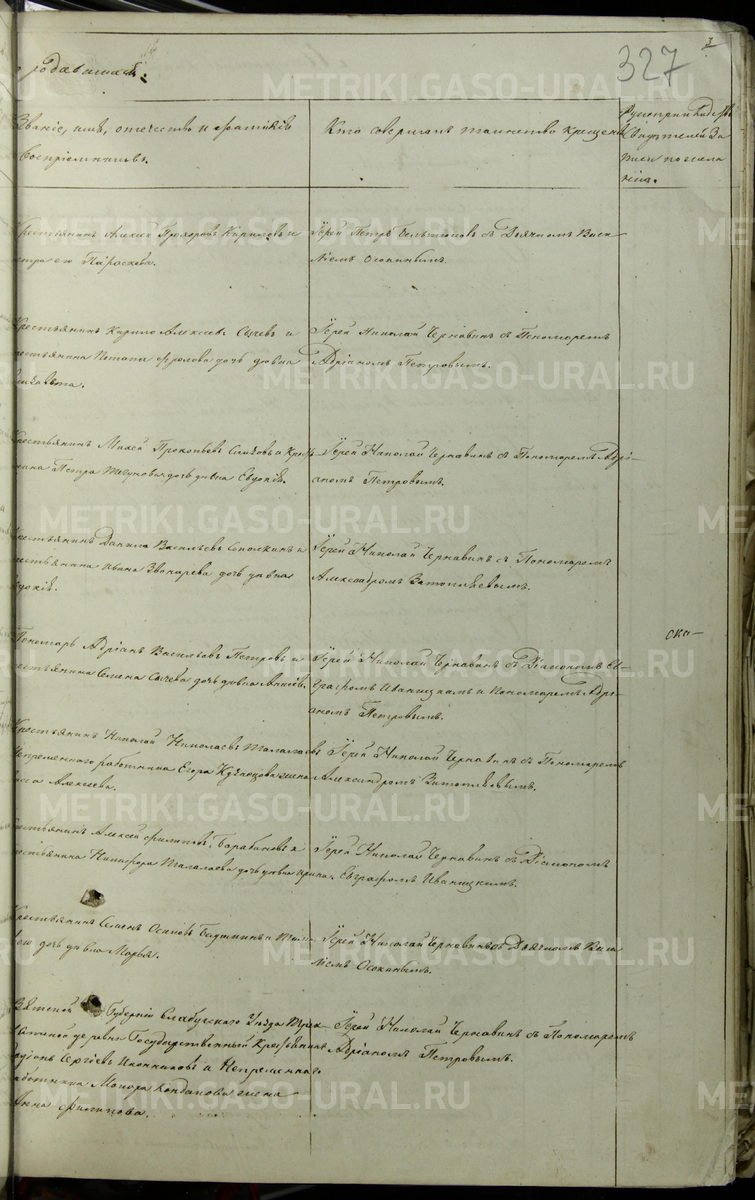 327
о родившихся.
Званіе, имя, отчество и фамилія
воспріемниковъ.
Кто совершалъ таинство крещенія
Рукоприкладство
свидѣтелей за
писи по жела
нію.
Крестьянинъ Алексей Прохоровъ Кириловъ и
сестра его Параскева.
Іерей Петръ с Дьячкомъ Васи
ліемъ Осокинымъ.
Крестьянинъ Кирило Алексеевъ Сычевъ и
крестьянина Потапа Фролова дочь дѣвица
Елизавета.
Іерей Николай Чернавинъ съ Пономаремъ
Адріаномъ Петровымъ.
Крестьянинъ Прокопьевъ и Кресть
янина Петра дочь дѣвица Евдокія.
Іерей Николай Чернавинъ съ Пономаремъ Адрі-
аномъ Петровымъ.
Крестьянинъ Данила Васильевъ и
крестьянина Ивана Звонарева дочь дѣвица
Евдокія.
Іерей Николай Чернавинъ съ Пономаремъ
Александромъ
Пономарь Адріанъ Васильевъ Петровъ и
крестьянина Семена Сычева дочь дѣвица Анисія.
Іерей Николай Чернавинъ съ Діакономъ Ев-
графомъ Иваницкимъ и Пономаремъ Адрі-
аномъ Петровымъ.
Крестьянинъ Николай Николаевъ Талалаевъ
Непременного работника Егора Кузнецова жена
Алексеева.
Іерей Николай Чернавинъ съ Пономаремъ
Александромъ
Крестьянинъ Алексей Филиповъ Барабановъ и
крестьянина Никифора Талалаева дочь дѣвица Ирина.
Іерей Николай Чернавинъ съ Діакономъ
Евграфомъ Иваницкимъ.
Крестьянинъ Семенъ Осиповъ и
дочь дѣвица Марья.
Іерей Николай Чернавинъ съ Дьячкомъ Васи
ліемъ Осокинымъ.
Вятской Губерніи Елабугского Уезда
деревни Государственный Крестьянинъ
Сергіевъ Иконниковъ и Непременного
работника жена
Анна Филипова.
Іерей Николай Чернавинъ съ Пономаремъ
Адріаномъ Петровымъ.
METRIKI.GASO-URAL.RU